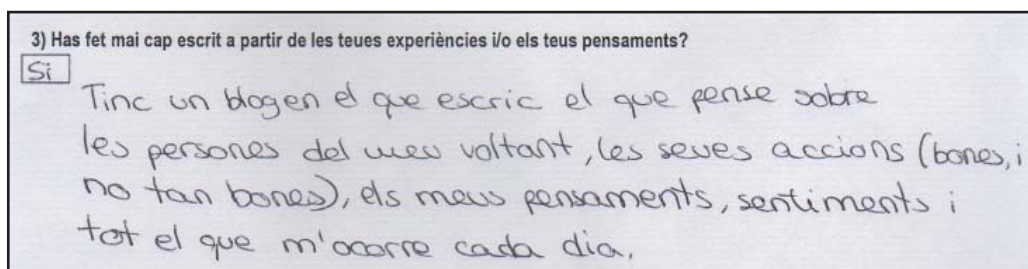 3) Has fet mai cap escrit a partir de les teues experiències i/o els teus pensaments?
Si
Tinc un blog en el que escric el que pense sobre
les persones del meu voltant, les seves accions (bones, i
no tan bones), els meus pensaments, sentiments i
tot el que m'ocorre cada dia.